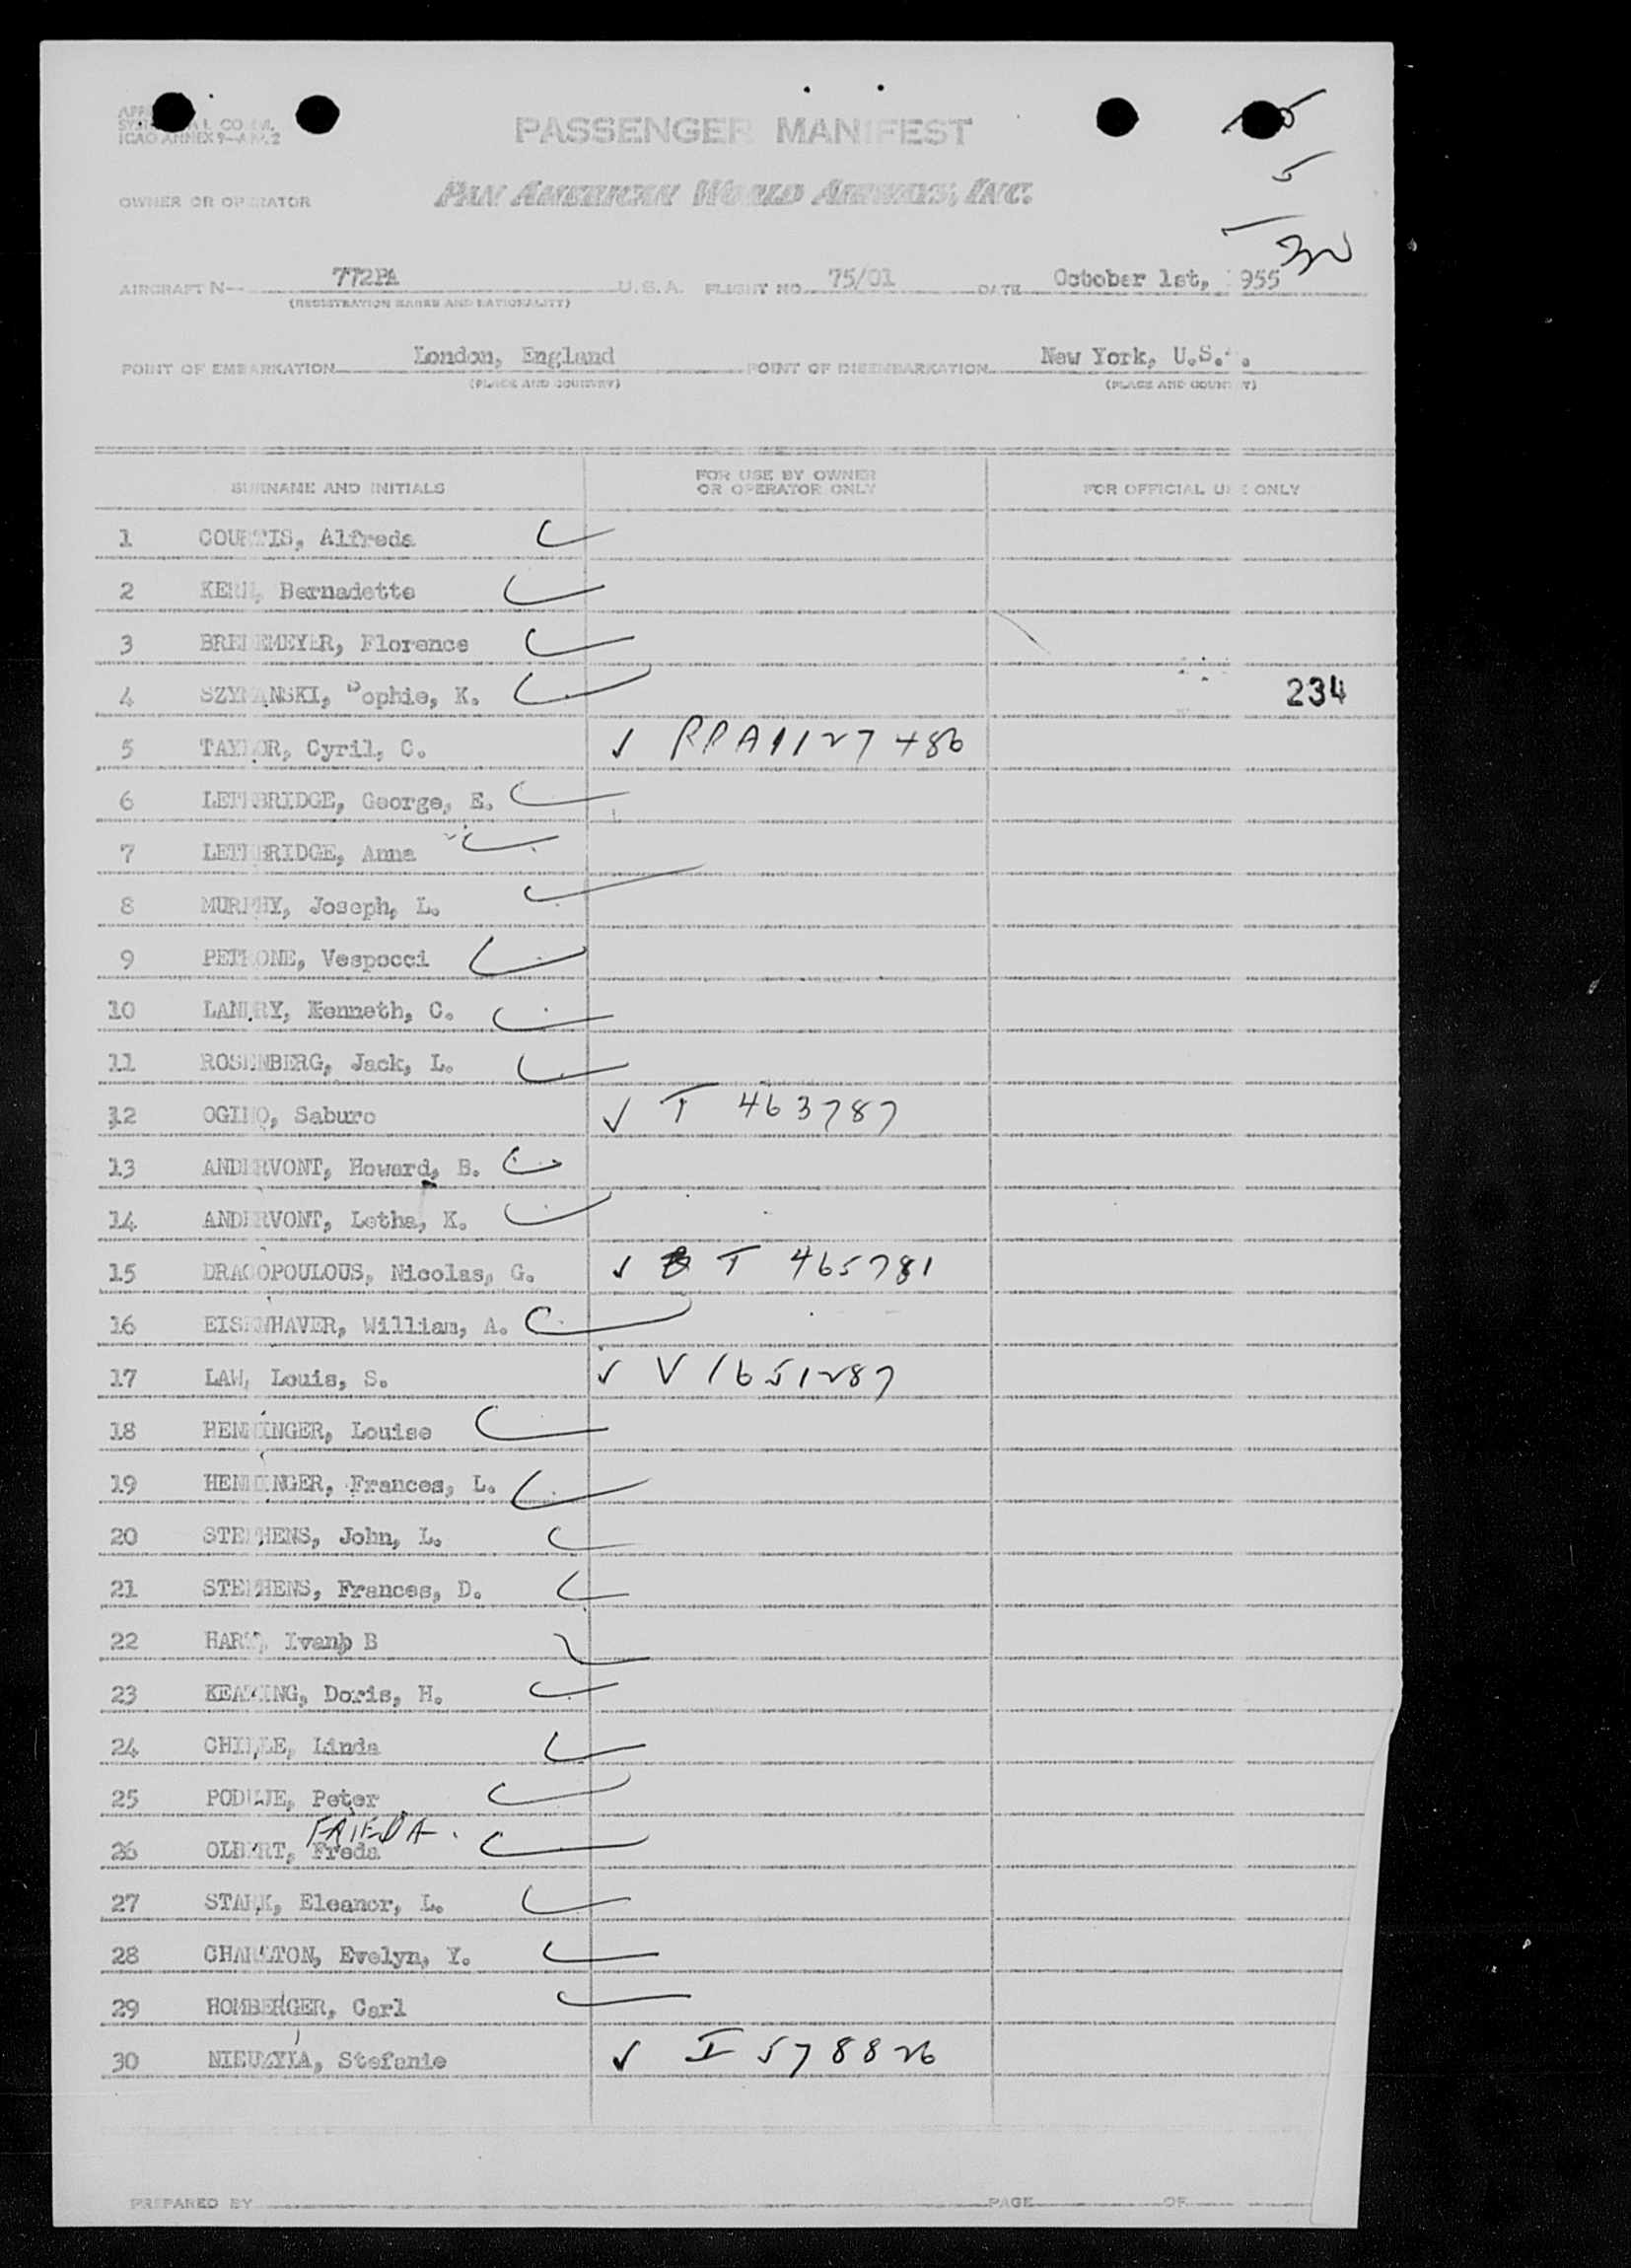 ICAO ANNEX 9
PASSENGER MANIFEST
OWNER OR OPERATOR
PAN AMERICAN WORLD AIRWAYS, INC.
AIRCRAFT N— 772PA U.S.A. FLIGHT NO. 75/01 DATE October 1st, 1955
(REGISTRATION MARKS AND NATIONALITY)
POINT OF EMBARKATION London, England POINT OF DISEMBARKATION New York, U.S.
(PLACE AND COUNTRY) (PLACE AND COUNTRY)
SURNAME AND INITIALS FOR USE BY OWNER OR OPERATOR ONLY FOR OFFICIAL USE ONLY
1 COURTIS, Alfreda
2 Bernadette
3 BREDEMEYER, Florence
4 SZYMANSKI, Sophie, K. 234
5 TAYLOR, Cyril, C. ✓
6 LETHBRIDGE, George, E.
7 LETHBRIDGE, Anna
8 MURPHY, Joseph, L.
9 PETRONE, Vespocci
10 LANDRY, Kenneth, C.
11 ROSENBERG, Jack, L.
12 OGINO, Saburo ✓ T 463787
13 ANDERVONT, Howard, B.
14 ANDERVONT, Letha, K.
15 DRACOPOULOUS, Nicolas, G. ✓ T 465781
16 EISENHAVER, William, A.
17 LAW, Louis, S. ✓ V1651287
18 HENNINGER, Louise
19 HENNINGER, Frances, L.
20 STEPHENS, John, L.
21 STEPHENS, Frances, D.
22 HART, B
23 KEATING, Doris, H.
24 Linda
25 Peter
FRIEDA.
26 OLBERT, Freda
27 STARK, Eleanor, L.
28 CHARLTON, Evelyn, Y.
29 HOMBERGER, Carl
30 Stefanie ✓ I 578826
PREPARED BY PAGE OF